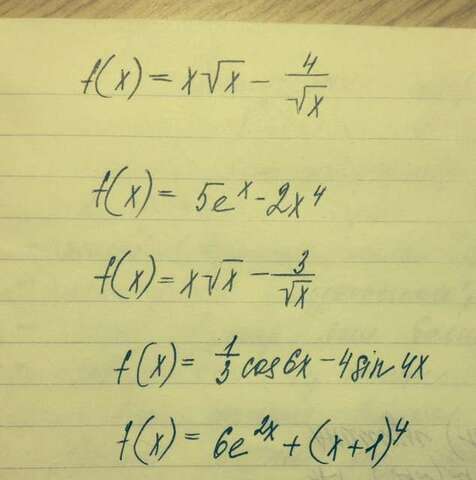 f(x) = x√x − 4/√x
f(x) = 5eˣ − 2x⁴
f(x) = x√x − 3/√x
f(x) = 1/3 cos 6x − 4 sin 4x
f(x) = 6e²ˣ + (x+1)⁴